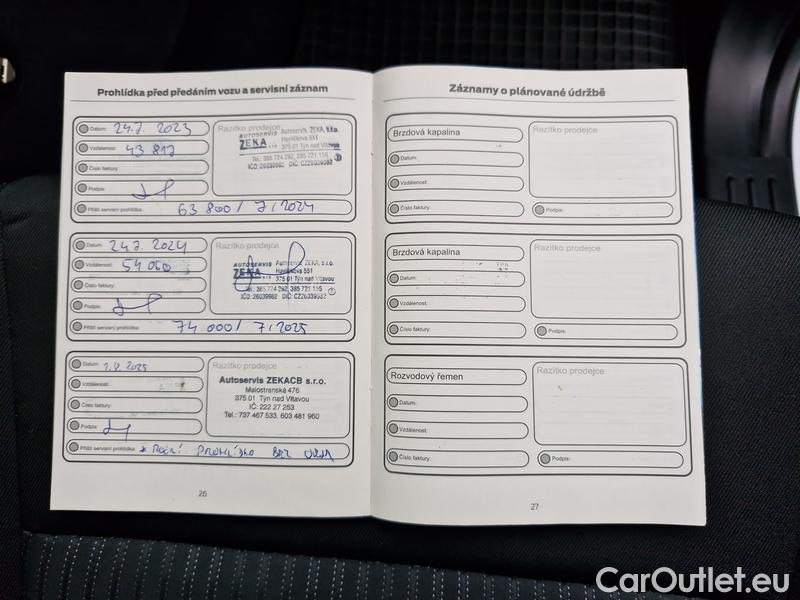 Prohlídka před předáním vozu a servisní záznam
Datum: 24.7. 2023
Vzdálenost: 43 817
Číslo faktury:
Podpis:
Příští servisní prohlídka: 63 800 / 7 / 2024
Razítko prodejce
AUTOSERVIS ZEKA s.r.o.
Autoservis ZEKA, s.r.o.
Havlíčkova 551
375 01 Týn nad Vltavou
Tel.: 385 724 292, 385 721 156
IČO: 26039982 DIČ: CZ26039982
Datum: 24.7. 2024
Vzdálenost: 54 060
Číslo faktury:
Podpis:
Příští servisní prohlídka: 74 000 / 7 / 2025
Razítko prodejce
AUTOSERVIS ZEKA s.r.o.
Autoservis ZEKA, s.r.o.
Havlíčkova 551
375 01 Týn nad Vltavou
Tel.: 385 724 292, 385 721 156
IČO: 26039982 DIČ: CZ26039982
Datum: 1.8. 2025
Vzdálenost:
Číslo faktury:
Podpis:
Příští servisní prohlídka: * ROČNÍ PROHLÍDKA BEZ
Razítko prodejce
Autoservis ZEKACB s.r.o.
Malostranská 476
375 01 Týn nad Vltavou
IČ: 222 27 253
Tel.: 737 467 533, 603 481 960
26
Záznamy o plánované údržbě
Brzdová kapalina
Datum:
Vzdálenost:
Číslo faktury:
Razítko prodejce
Podpis:
Brzdová kapalina
Datum:
Vzdálenost:
Číslo faktury:
Razítko prodejce
Podpis:
Rozvodový řemen
Datum:
Vzdálenost:
Číslo faktury:
Razítko prodejce
Podpis:
27
CarOutlet.eu